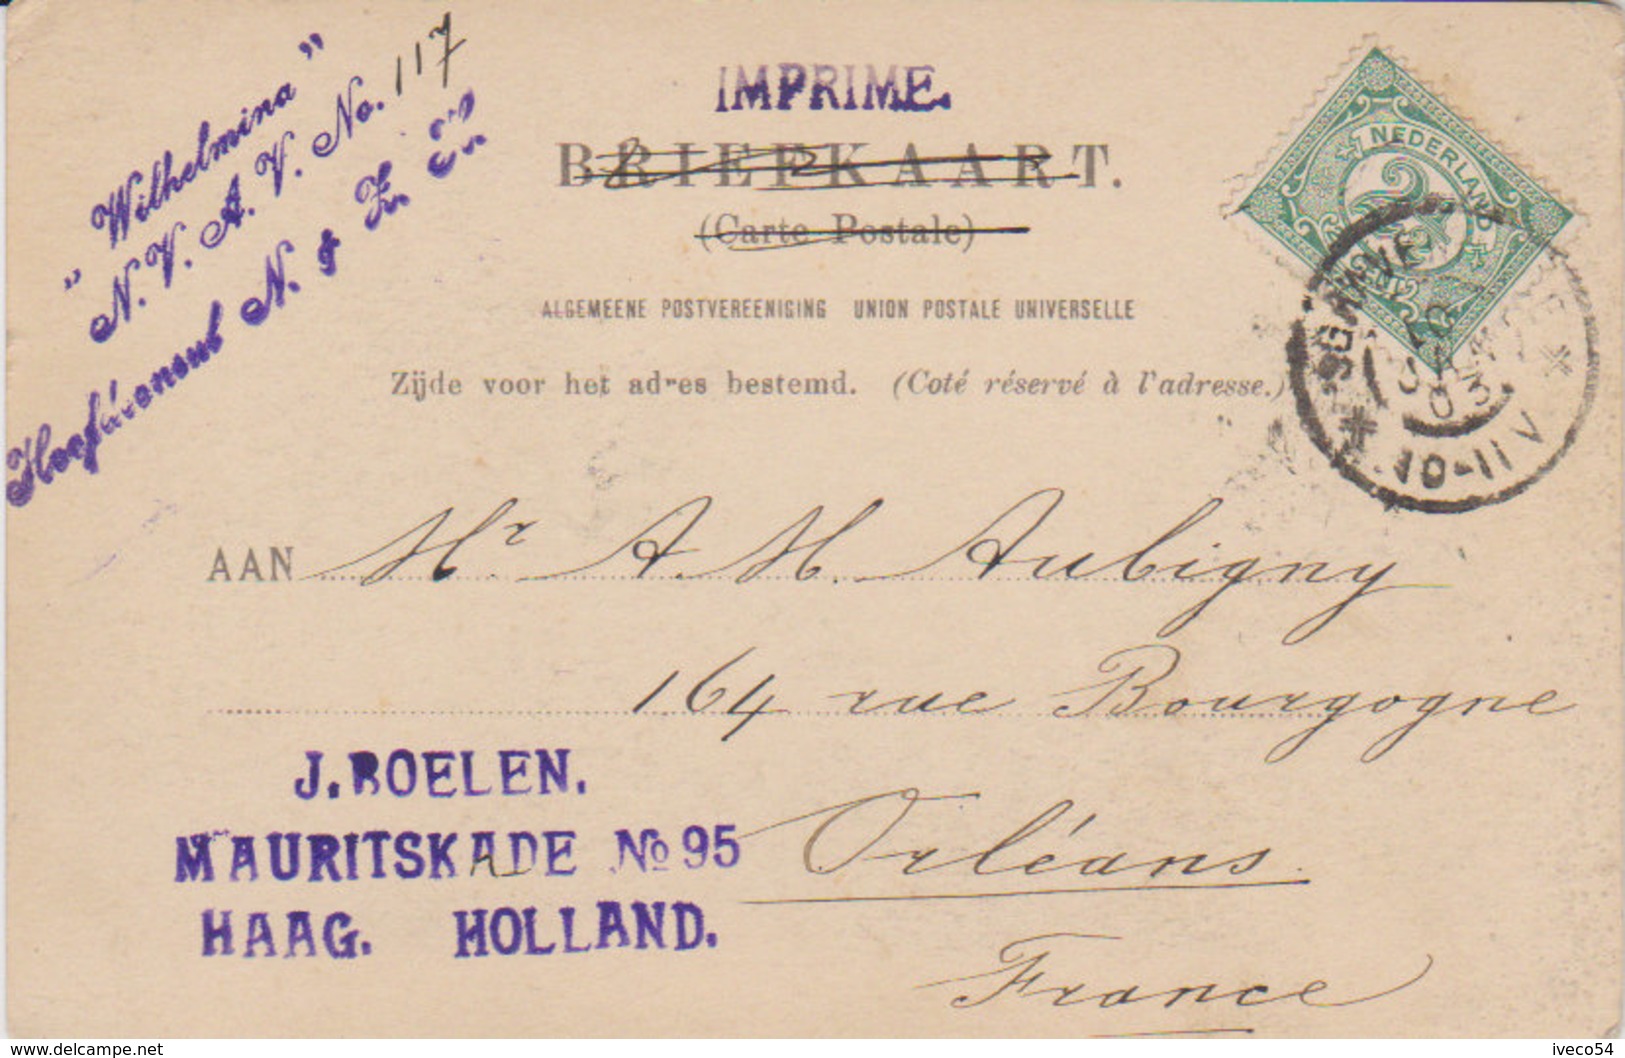 "Wilhelmina"
N. V. A. V. No. 117
Hoofdconsul N. & Z. H.
IMPRIME.
BRIEFKAART.
(Carte Postale)
ALGEMEENE POSTVEREENIGING UNION POSTALE UNIVERSELLE
Zijde voor het adres bestemd. (Coté réservé à l'adresse.)
NEDERLAND
2½
CENT
10-11 V
AAN Mr A. M. Aubigny
164 rue Bourgogne
J. BOELEN.
MAURITSKADE No 95
HAAG. HOLLAND.
Orléans
France
www.delcampe.net
iveco54